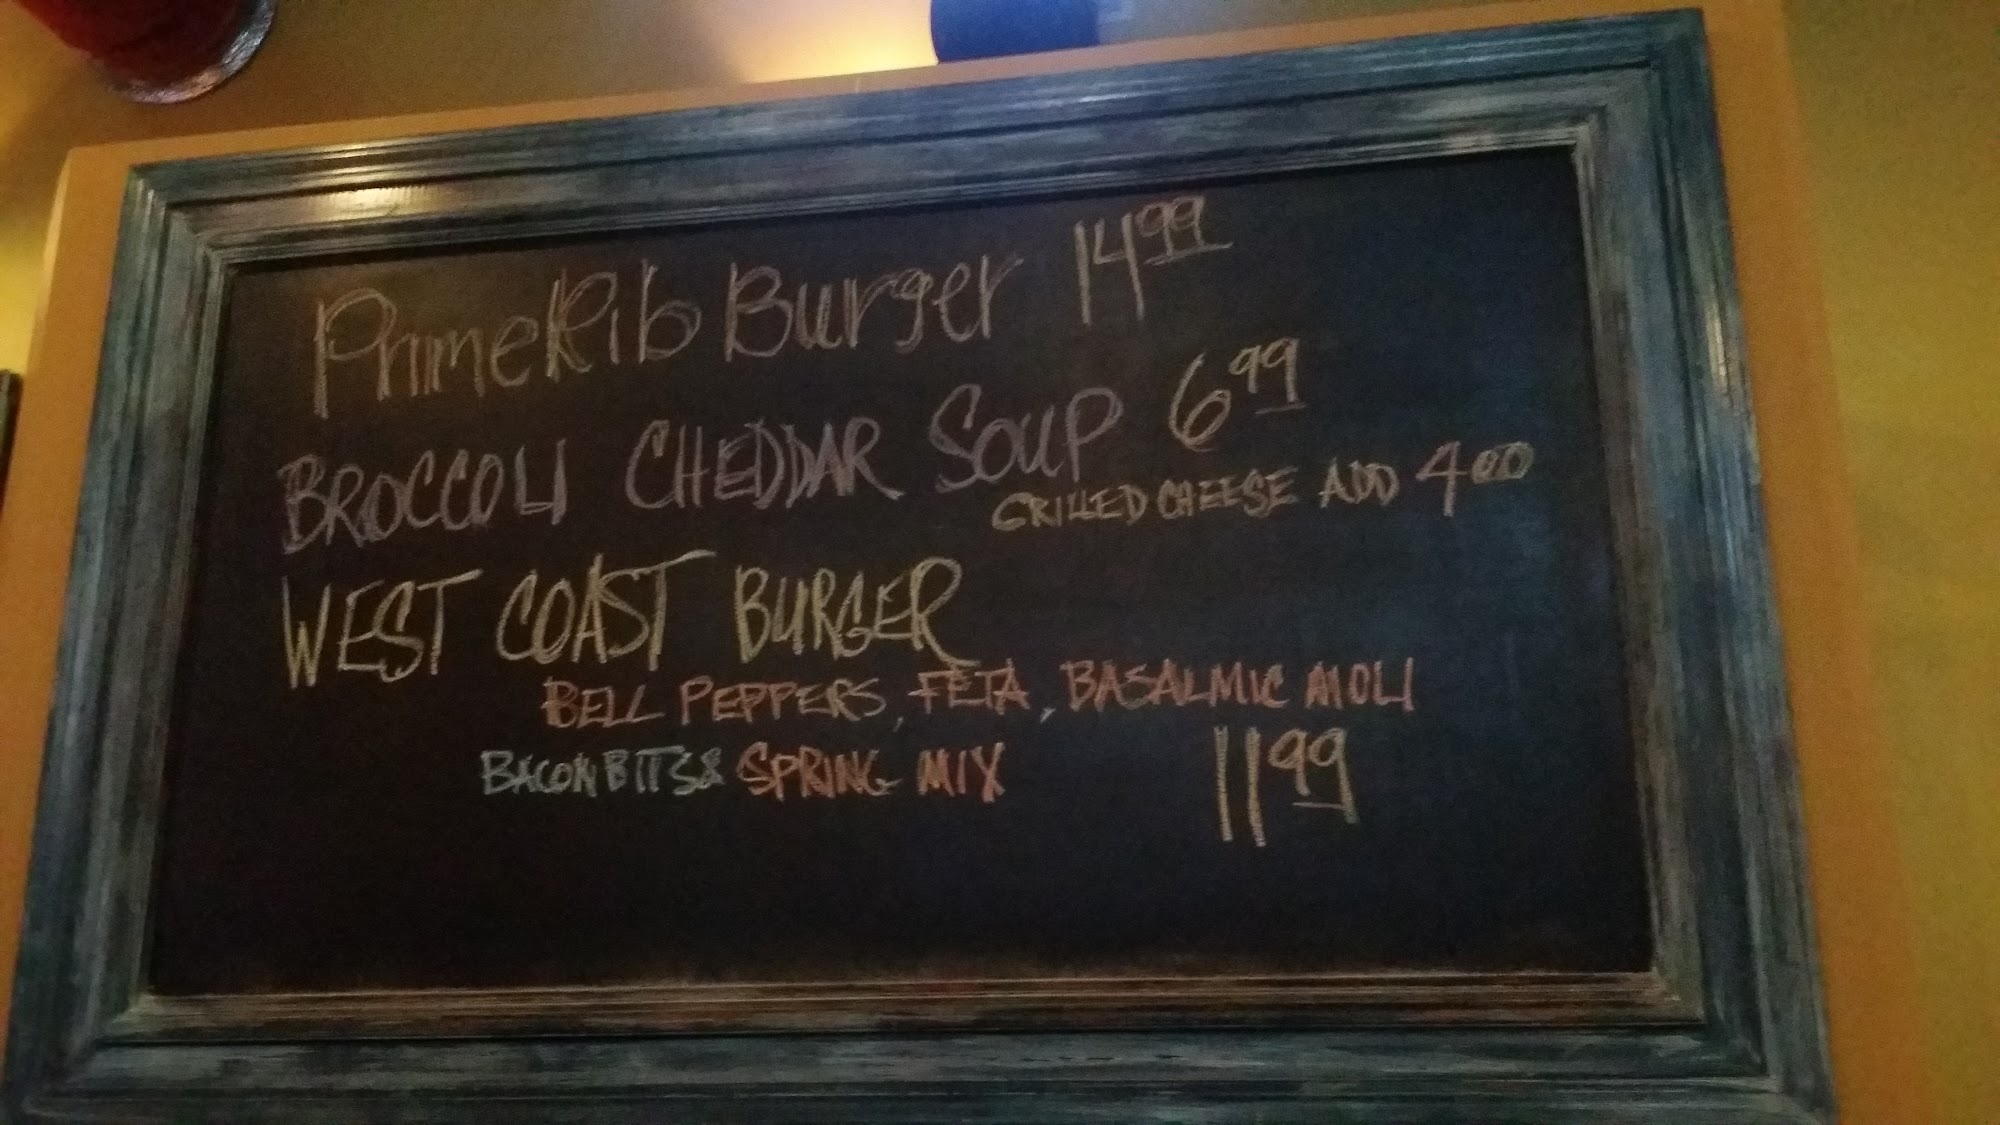 PrimeRib Burger 14 99
BROCCOLI CHEDDAR SOUP 6 99
GRILLED CHEESE ADD 4 00
WEST COAST BURGER
BELL PEPPERS, FETA, BASALMIC AIOLI
BACON BITS & SPRING MIX 11 99